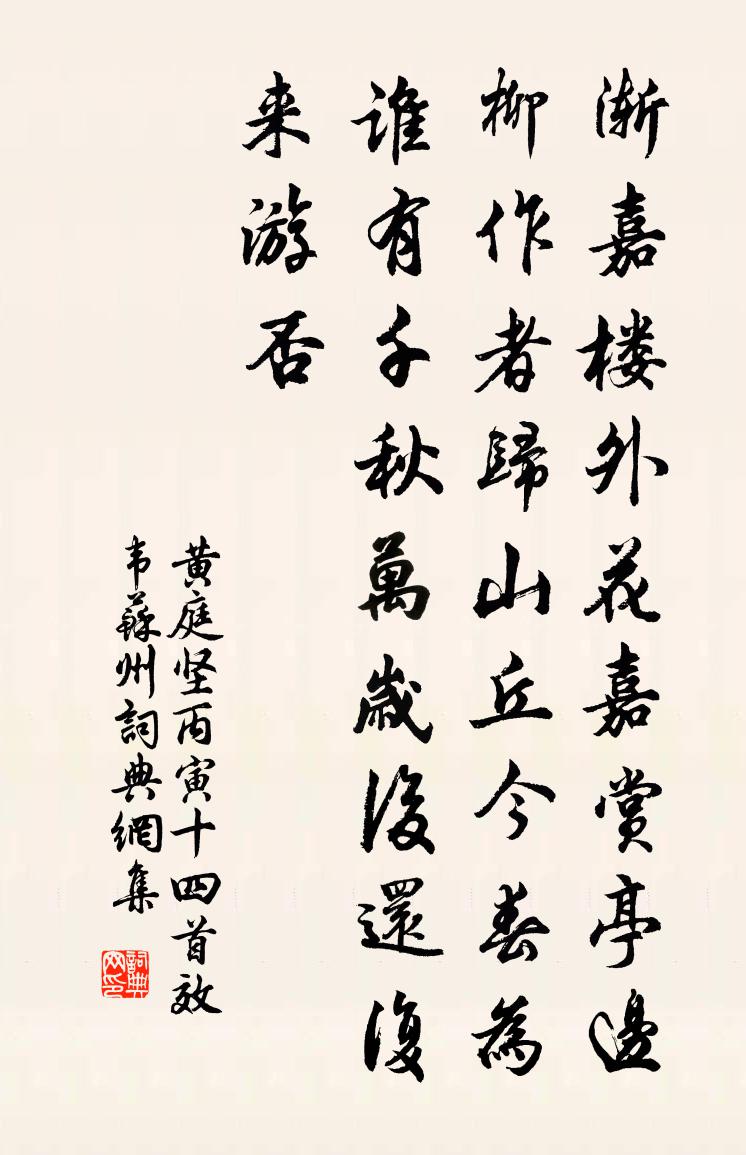 渐嘉楼外花嘉赏亭邊
柳作者歸山丘今春為
谁有千秋萬歲後還復
来游否
黄庭坚丙寅十四首效
韦蘇州詞典網集
詞典
网印